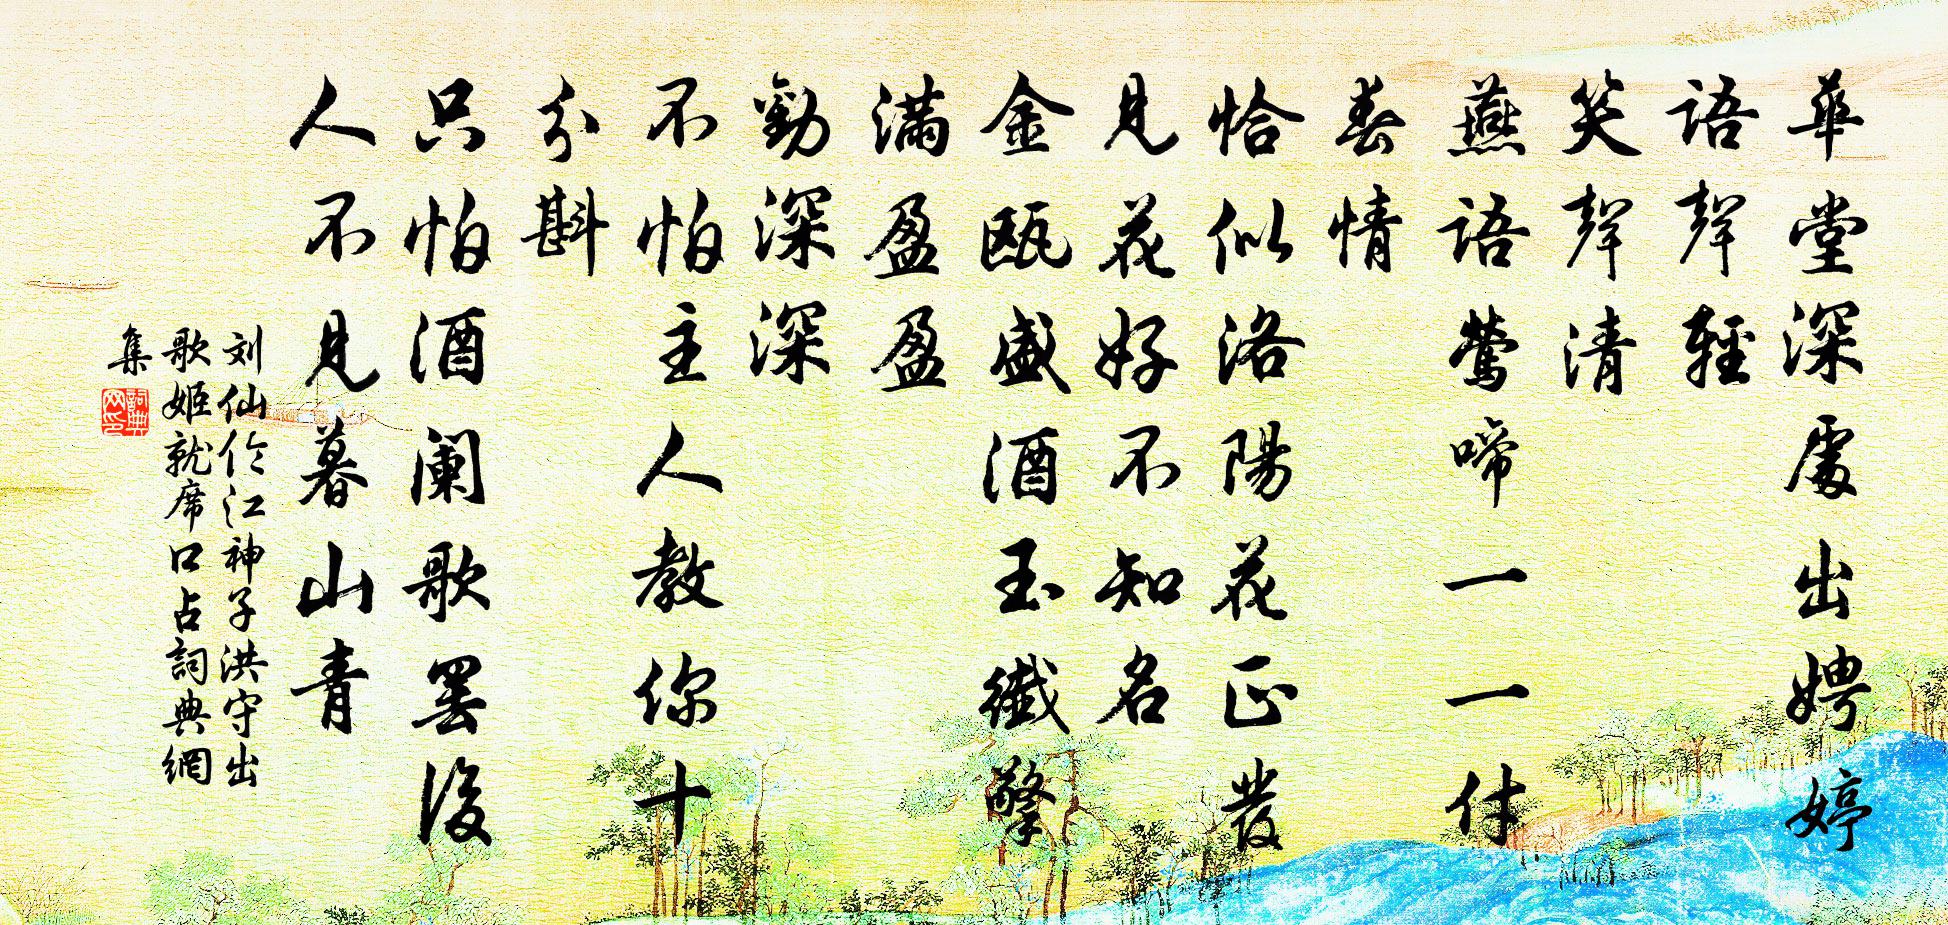 華堂深處出娉婷
語聲輕
笑聲清
燕語鶯啼一一付
春情
恰似洛陽花正發
見花好不知名
金甌盛酒玉纖擎
滿盈盈
勸深深
不怕主人教你十
分斟
只怕酒闌歌罷後
人不見暮山青
刘仙伦江神子洪守出
歌姬就席口占詞典網
集
詞典
网印